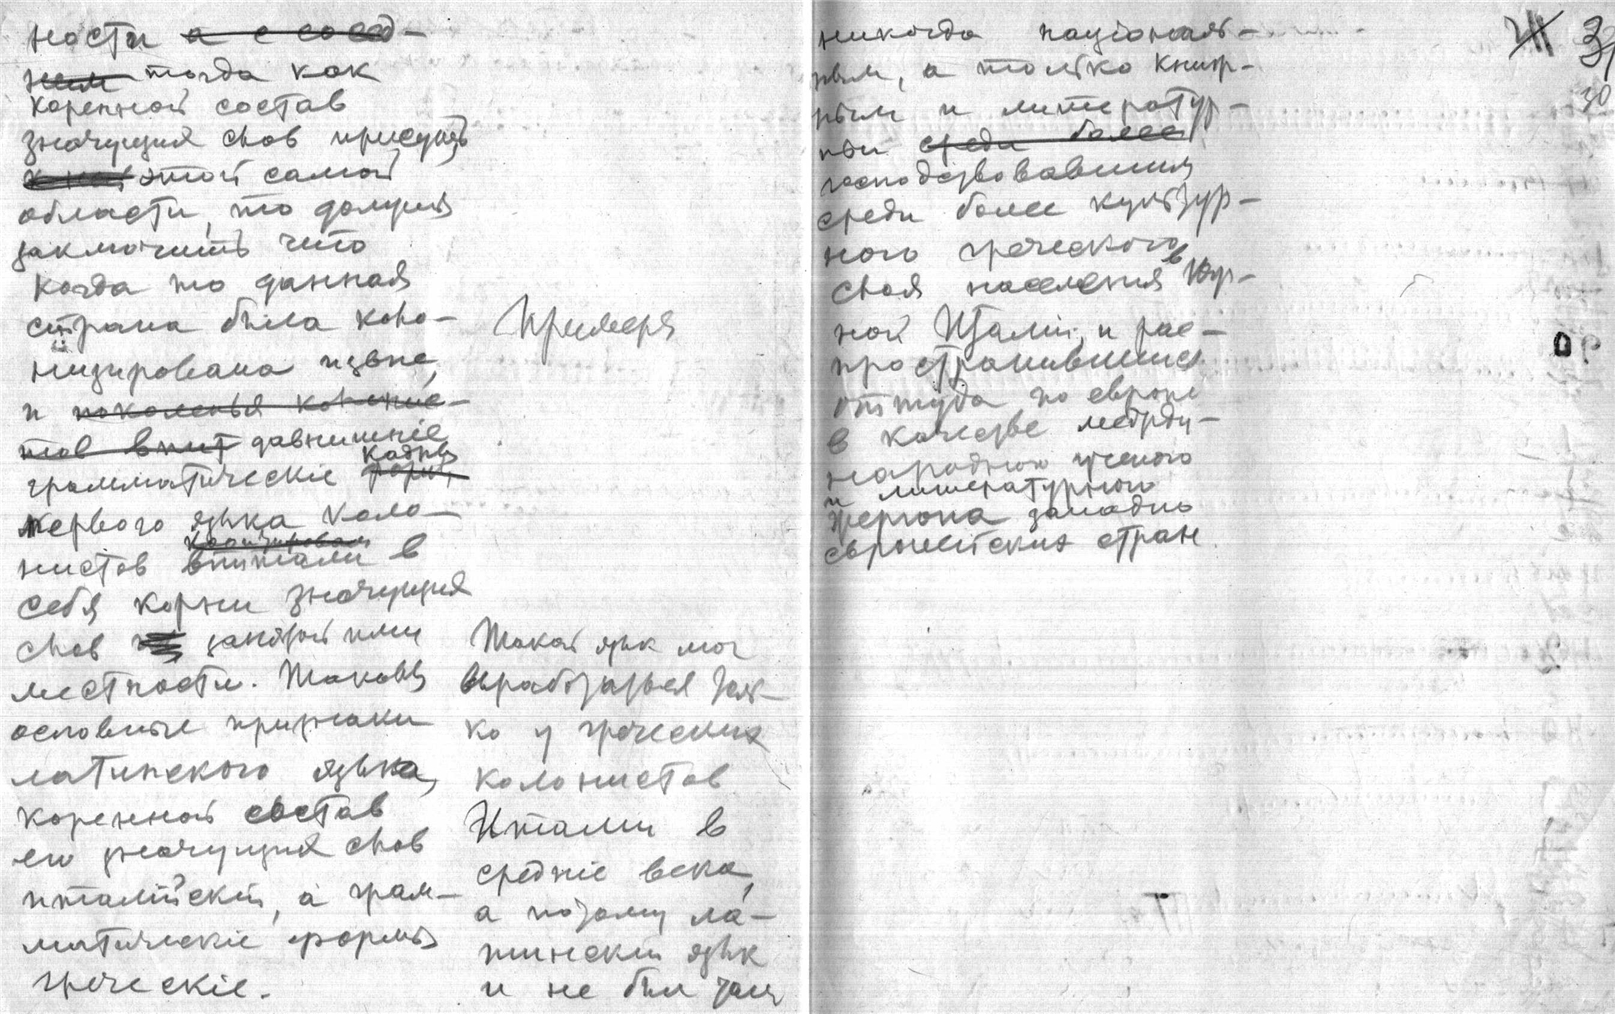 ности а с сосед-
ней тогда как
коренной состав
значущих слов присущ
этой самой
области, то должны
заключить что
когда то данная
страна была коло-
низирована извне,
и поколенья колонис-
тов впит давнишніе
кадры
грамматическіе формы
первого языка коло-
нистов впитали в
себя корни значущих
слов занятой ими
местности. Таковы
основные признаки
латинского языка,
коренной состав
его значущих слов
италійскій, а грам-
матическіе формы
греческіе.
Примеры
Такой язык мог
выработаться толь-
ко у греческих
колонистов
Италии в
средніе века,
а потому ла-
тинскій язык
и не был там
никогда націонал-
ным, а только книж-
ным и литератур-
ным среди более
господствовавшим
среди более культур-
ного греческого
слоя населения в Юж-
ной Италіи, и рас-
пространившимся
оттуда по европе
в качестве между-
народного ученого
и литературного
жаргона западно
европейских стран
VII 31
30